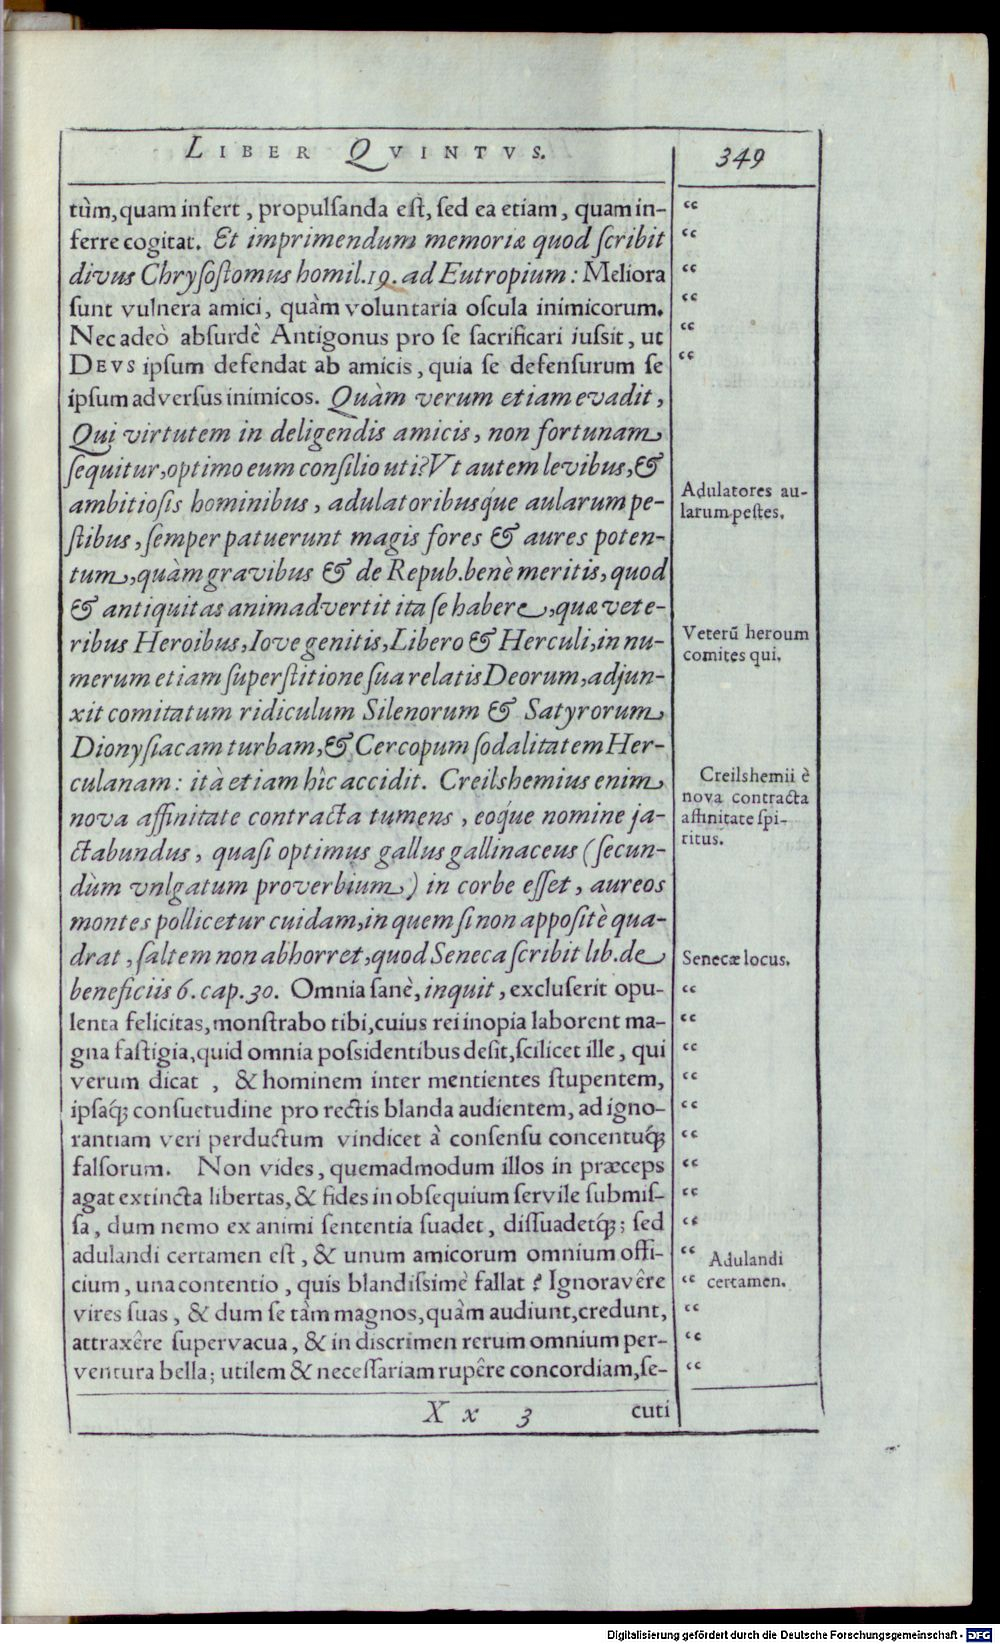 LIBER QVINTVS.
349
tùm, quam infert, propulsanda est, sed ea etiam, quam in-
ferre cogitat. Et imprimendum memoriæ quod scribit
divus Chrysostomus homil. 19. ad Eutropium: Meliora
sunt vulnera amici, quàm voluntaria oscula inimicorum.
Nec adeò absurdè Antigonus pro se sacrificari iussit, ut
DEVS ipsum defendat ab amicis, quia se defensurum se
ipsum adversus inimicos. Quàm verum etiam evadit,
Qui virtutem in deligendis amicis, non fortunam
sequitur, optimo eum consilio uti? Vt autem levibus, &
ambitiosis hominibus, adulatoribusq́ue aularum pe-
stibus, semper patuerunt magis fores & aures poten-
tum, quàm gravibus & de Repub. benè meritis, quod
& antiquitas animadvertit ita se habere, quæ vete-
ribus Heroibus, Iove genitis, Libero & Herculi, in nu-
merum etiam superstitione sua relatis Deorum, adjun-
xit comitatum ridiculum Silenorum & Satyrorum
Dionysiacam turbam, & Cercopum sodalitatem Her-
culanam: ità etiam hîc accidit. Creilshemius enim
nova affinitate contracta tumens, eoq́ue nomine ja-
ctabundus, quasi optimus gallus gallinaceus (secun-
dùm vnlgatum proverbium) in corbe esset, aureos
montes pollicetur cuidam, in quem si non appositè qua-
drat, saltem non abhorret, quod Seneca scribit lib. de
beneficiis 6. cap. 30. Omnia sanè, inquit, excluserit opu-
lenta felicitas, monstrabo tibi, cuius rei inopia laborent ma-
gna fastigia, quid omnia possidentibus desit, scilicet ille, qui
verum dicat , & hominem inter mentientes stupentem,
ipsaq́; consuetudine pro rectis blanda audientem, ad igno-
rantiam veri perductum vindicet à consensu concentuq́;
falsorum. Non vides, quemadmodum illos in præceps
agat extincta libertas, & fides in obsequium servile submis-
sa, dum nemo ex animi sententia suadet, dissuadetq́;; sed
adulandi certamen est, & unum amicorum omnium offi-
cium, una contentio, quis blandissimè fallat? Ignoravêre
vires suas, & dum se tàm magnos, quàm audiunt, credunt,
attraxêre supervacua, & in discrimen rerum omnium per-
ventura bella; utilem & necessariam rupêre concordiam, se-
X x 3
cuti
“
“
“
“
“
“
Adulatores au-
larum pestes.
Veterũ heroum
comites qui.
Creilshemii è
nova contracta
affinitate spi-
ritus.
Senecæ locus.
“
“
“
“
“
“
“
“
“
“ Adulandi
“ certamen.
“
“
“
Digitalisierung gefördert durch die Deutsche Forschungsgemeinschaft - DFG